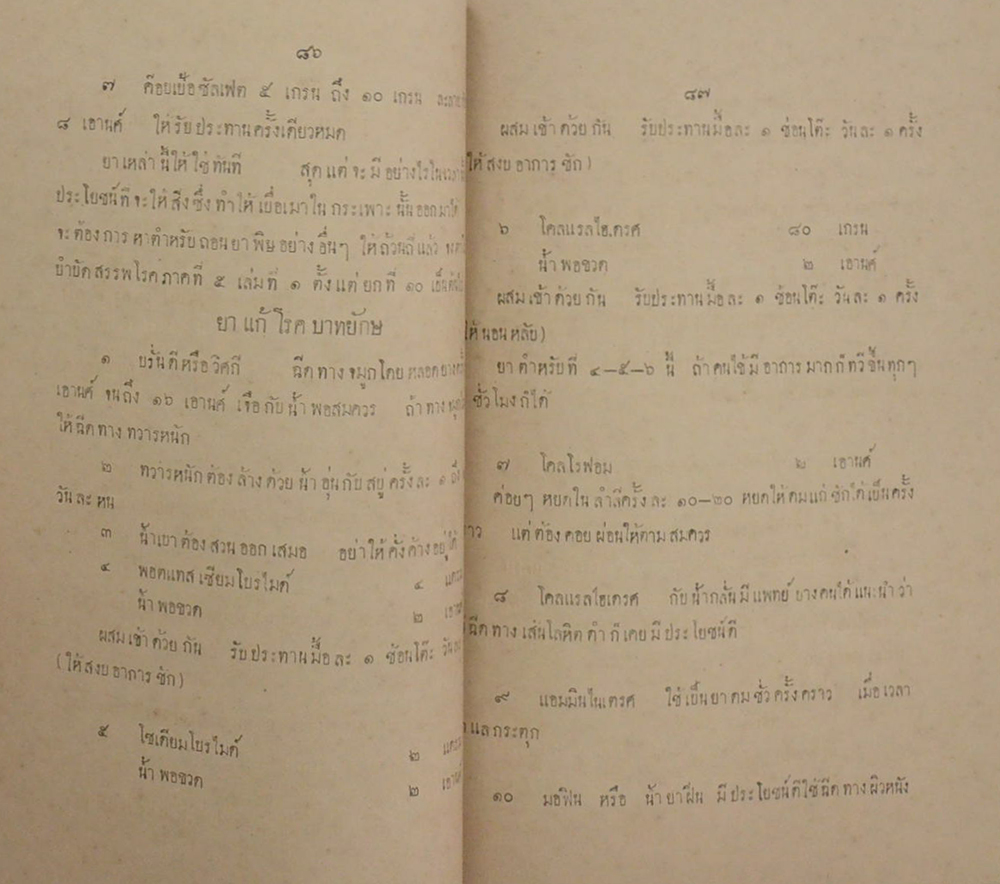 ๘๖
๗ ค๊อบเป้อซัลเฟต ๕ เกรน ถึง ๑๐ เกรน
๘ เอานศ์ ให้รับประทานครั้งเดียวหมด
ยาเหล่านี้ให้ใช้ทันที สุดแต่จะมีอย่างไรใน
ประโยชน์ที่จะให้สิ่งซึ่งทำให้เบื่อเมาในกระเพาะนั้นออกมาได้
จะต้องการหาตำหรับถอนยาพิษอย่างอื่นๆ ให้ถ้วนถี่แล้ว
บำบัดสรรพโรคภาคที่ ๕ เล่มที่ ๑ ตั้งแต่ยกที่ ๑๐
ยาแก้โรคบาทยักษ
๑ บรั่นดีหรือวิศกี ฉีดทางจมูกโดยหลอดยาง
เอานศ์ จนถึง ๑๖ เอานศ์ เจือกับน้ำพอสมควร ถ้าทาง
ให้ฉีดทางทวารหนัก
๒ ทวารหนักต้องล้างด้วยน้ำอุ่นกับสบู่ครั้งละ ๑ ถึง
วันละหน
๓ น้ำเบาต้องสวนออกเสมอ อย่าให้คั่งค้างอยู่ได้
๔ พอตแทสเซียมโบรไมด์ ๔
น้ำพอขวด ๒
ผสมเข้าด้วยกัน รับประทานมื้อละ ๑ ช้อนโต๊ะ วันละ
(ให้สงบอาการชัก)
๕ โซเดียมโบรไมด์ ๒
น้ำพอขวด ๒
๘๗
ผสมเข้าด้วยกัน รับประทานมื้อละ ๑ ช้อนโต๊ะ วันละ ๑ ครั้ง
ให้สงบอาการชัก)
๖ โคลแรลไฮเดรศ ๘๐ เกรน
น้ำพอขวด ๒ เอานศ์
ผสมเข้าด้วยกัน รับประทานมื้อละ ๑ ช้อนโต๊ะ วันละ ๑ ครั้ง
ให้นอนหลับ)
ยาตำหรับที่ ๔—๕—๖ นี้ ถ้าคนไข้มีอาการมากก็ทวีขึ้นทุกๆ
ชั่วโมงก็ได้
๗ โคลโรฟอม ๒ เอานศ์
ค่อยๆ หยดในสำลีครั้งละ ๑๐—๒๐ หยดให้ดมแก้ชักได้เป็นครั้ง
แต่ต้องคอยผ่อนให้ตามสมควร
๘ โคลแรลไฮเดรศ กับน้ำกลั่นมีแพทย์บางคนได้แนะนำว่า
ฉีดทางเส้นโลหิตดำก็เคยมีประโยชน์ดี
๙ แอมมินไนเตรศ ใช้เป็นยาดมชั่วครั้งคราว เมื่อเวลา
แลกระตุก
๑๐ มอฟิน หรือ น้ำยาฝิ่น มีประโยชน์ดีใช้ฉีดทางผิวหนัง